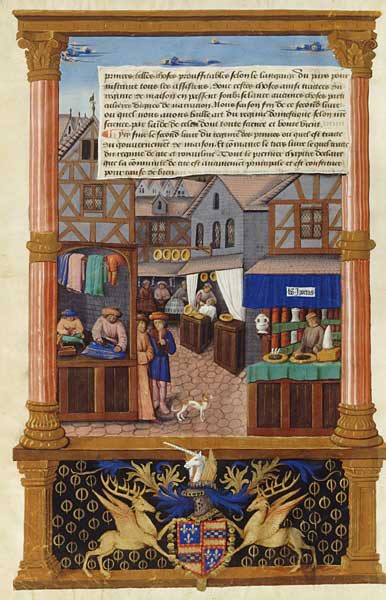 princes telles choses prouffitables selon le langaige du pais pour
instruire tous les assistens. Donc cestes choses ainsi traictees du
regime de maison en passent soubz silence aucunes choses par
Nous faisons fin de ce second livre
ou quel nous avons baille art du regime domestique selon mon
science par laide de celui dont toute science et bonte vient.
Cy fine le second livre du regime des princes ou quel est traicte
du gouvernement de maison. Et commance le tiers livre lequel traicte
du regime de cite et royaulme. Dont le premier chapitre declaire
que la communite de cite est aucunement principale et est constituee
pour cause de bien.